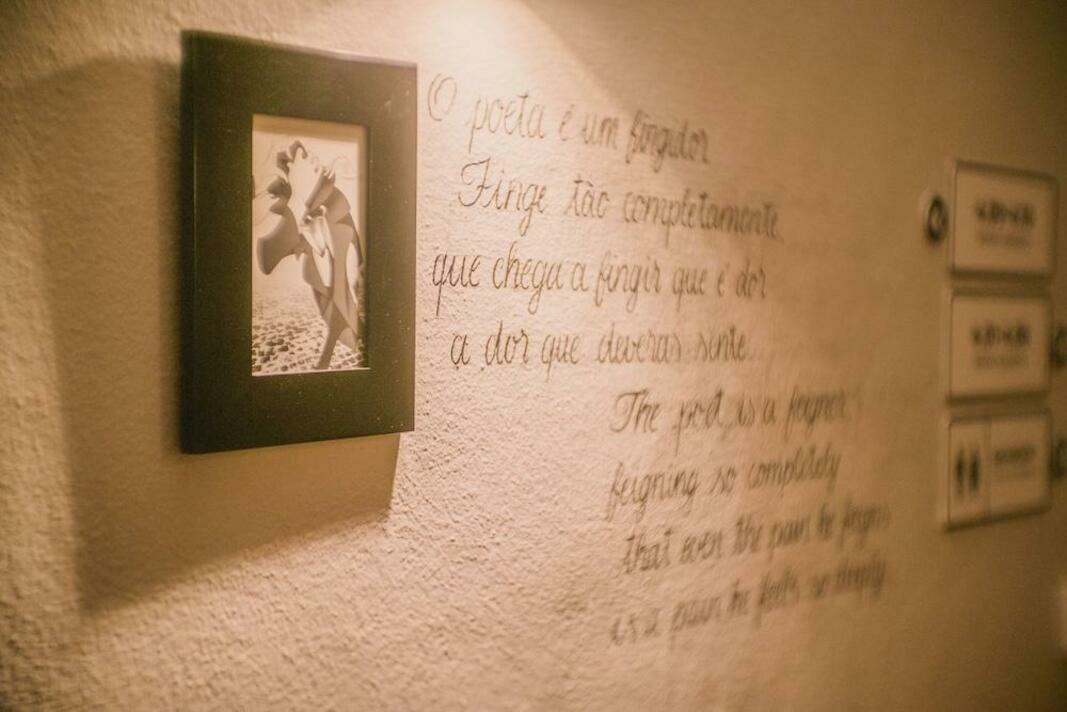 O poeta é um fingidor
Finge tão completamente
que chega a fingir que é dor
a dor que deveras sente...
The poet is a feigner
feigning so completely
that even the pain he feigns
is a pain he feels so deeply